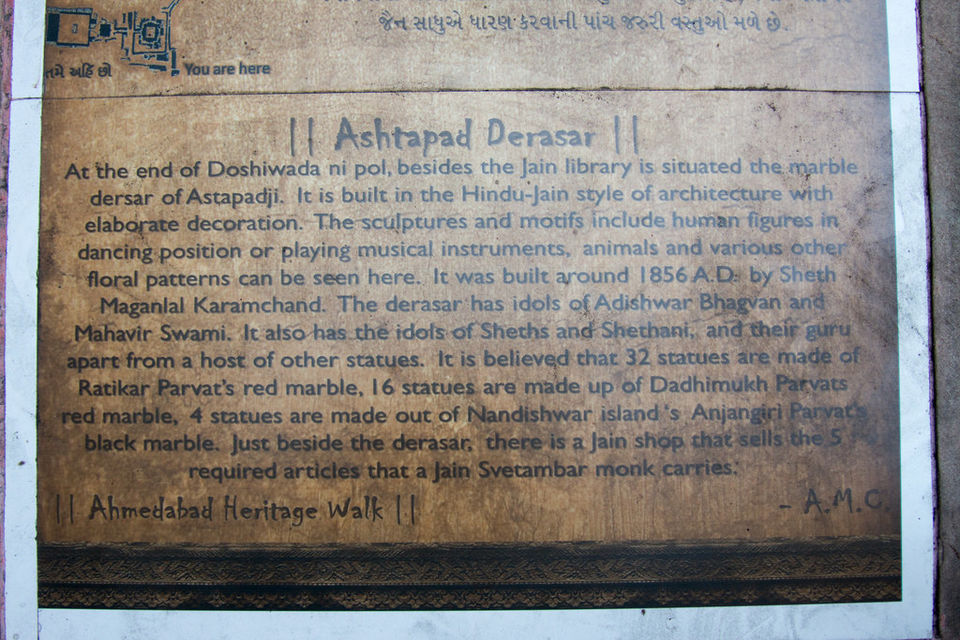 જૈન સાધુએ ધારણ કરવાની પાંચ જરુરી વસ્તુઓ મળે છે.
તમે અહિં છો
You are here
|| Ashtapad Derasar ||
At the end of Doshiwada ni pol, besides the Jain library is situated the marble
dersar of Astapadji. It is built in the Hindu-Jain style of architecture with
elaborate decoration. The sculptures and motifs include human figures in
dancing position or playing musical instruments, animals and various other
floral patterns can be seen here. It was built around 1856 A.D. by Sheth
Maganlal Karamchand. The derasar has idols of Adishwar Bhagvan and
Mahavir Swami. It also has the idols of Sheths and Shethani, and their guru
apart from a host of other statues. It is believed that 32 statues are made of
Ratikar Parvat's red marble, 16 statues are made up of Dadhimukh Parvats
red marble, 4 statues are made out of Nandishwar island 's Anjangiri Parvat's
black marble. Just beside the derasar, there is a Jain shop that sells the 5
required articles that a Jain Svetambar monk carries.
|| Ahmedabad Heritage Walk ||
- A.M.C.